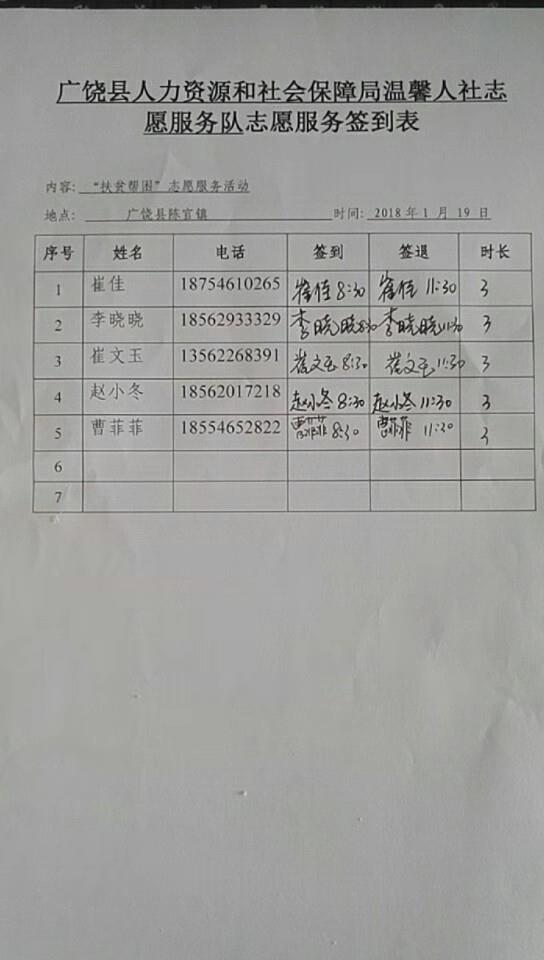 广饶县人力资源和社会保障局温馨人社志
愿服务队志愿服务签到表
内容: “扶贫帮困”志愿服务活动
地点: 广饶县陈官镇 时间: 2018年1 月 19 日
序号 姓名 电话 签到 签退 时长
1 崔佳 18754610265 崔佳 8:30 崔佳 11:30 3
2 李晓晓 18562933329 李晓晓 8:30 李晓晓 11:30 3
3 崔文玉 13562268391 崔文玉 8:30 崔文玉 11:30 3
4 赵小冬 18562017218 赵小冬 8:30 赵小冬 11:30 3
5 曹菲菲 18554652822 曹菲菲 8:30 曹菲菲 11:30 3
6
7